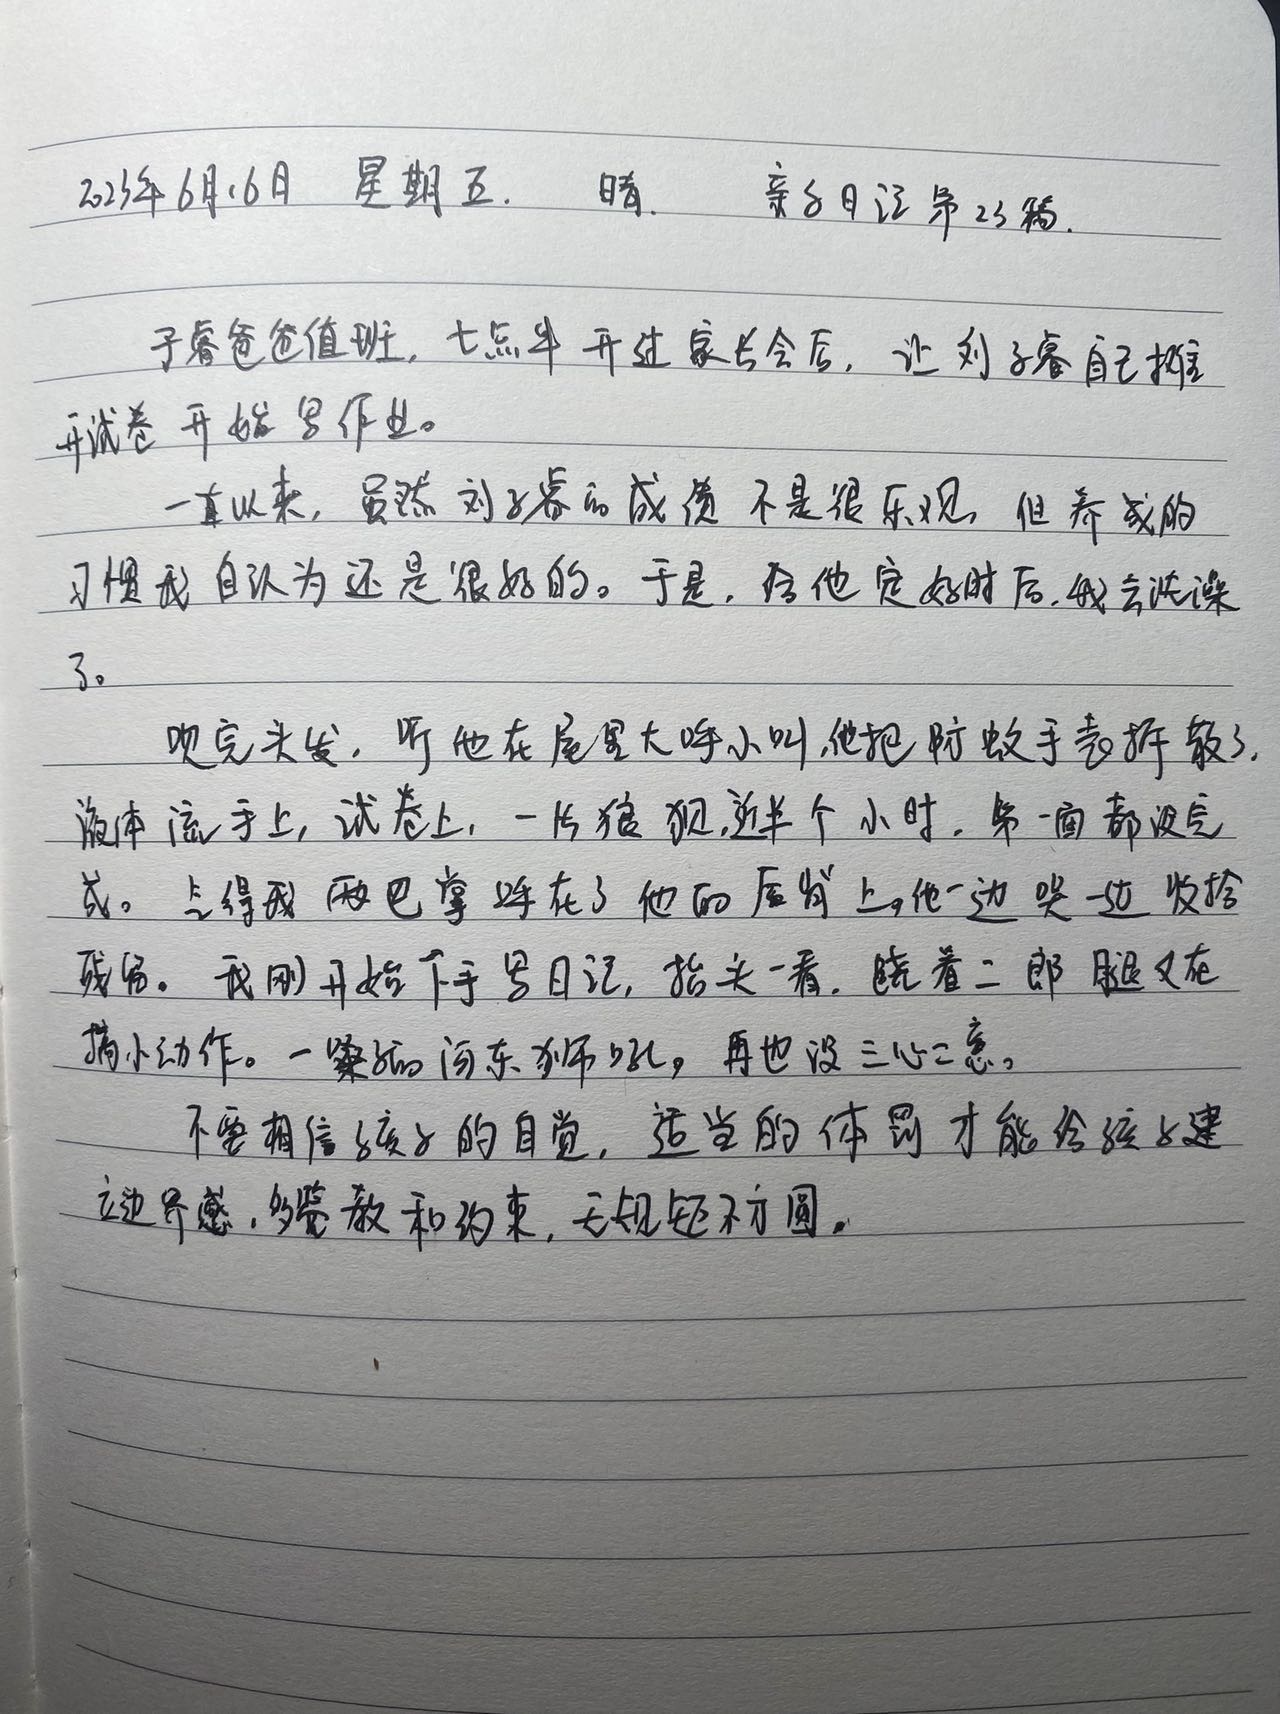 2023年6月16日 星期五. 晴. 亲子日记第23稿.
子睿爸爸值班, 七点半开过家长会后, 让刘子睿自己摊
开试卷开始写作业。
一直以来, 虽然刘子睿的成绩不是很乐观, 但养成的
习惯我自认为还是很好的。于是, 给他定好时后, 我去洗澡
了。
吹完头发, 听他在屋里大呼小叫, 他把防蚊手表拆散了,
液体流手上, 试卷上, 一片狼狈, 近半个小时, 第一面都没完
成。气得我两巴掌呼在了他的后背上。他一边哭一边收拾
残局。我刚开始下手写日记, 抬头一看, 跷着二郎腿又在
搞小动作。一嗓子的河东狮吼, 再也没三心二意。
不要相信孩子的自觉, 适当的体罚才能给孩子建
立边界感, 多管教和约束, 无规矩不方圆。